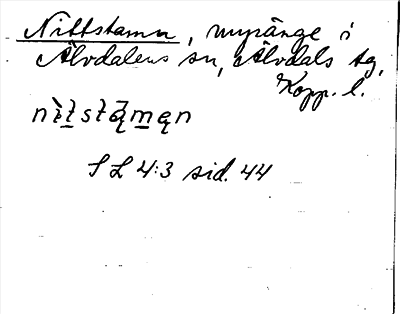 Nittstamn, myränge i
Älvdalens sn, Älvdals tg,
Kopp. l.
nìtstą̄mąn
SL 4:3 sid. 44